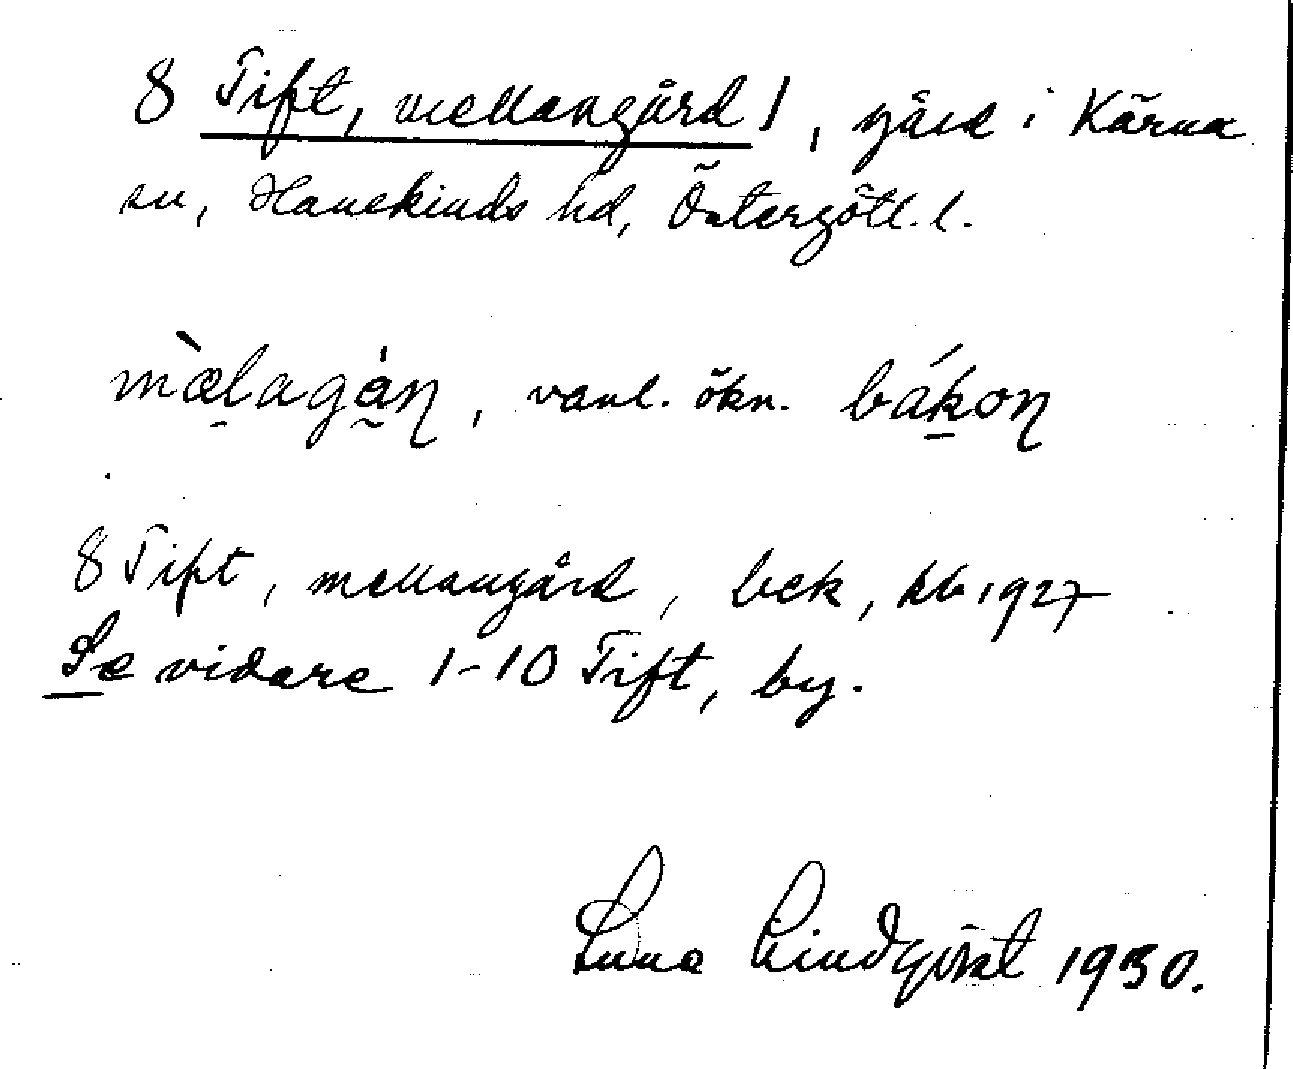 8 Tift, mellangård 1, gård i Kärna
sn, Hanekinds hd, Östergötl. l.
mæ̀lagàn, vanl. ökn. bákon
8 Tift, mellangård, bek, Jb 1927
Se vidare 1-10 Tift, by.
Sune Lindqvist 1930.